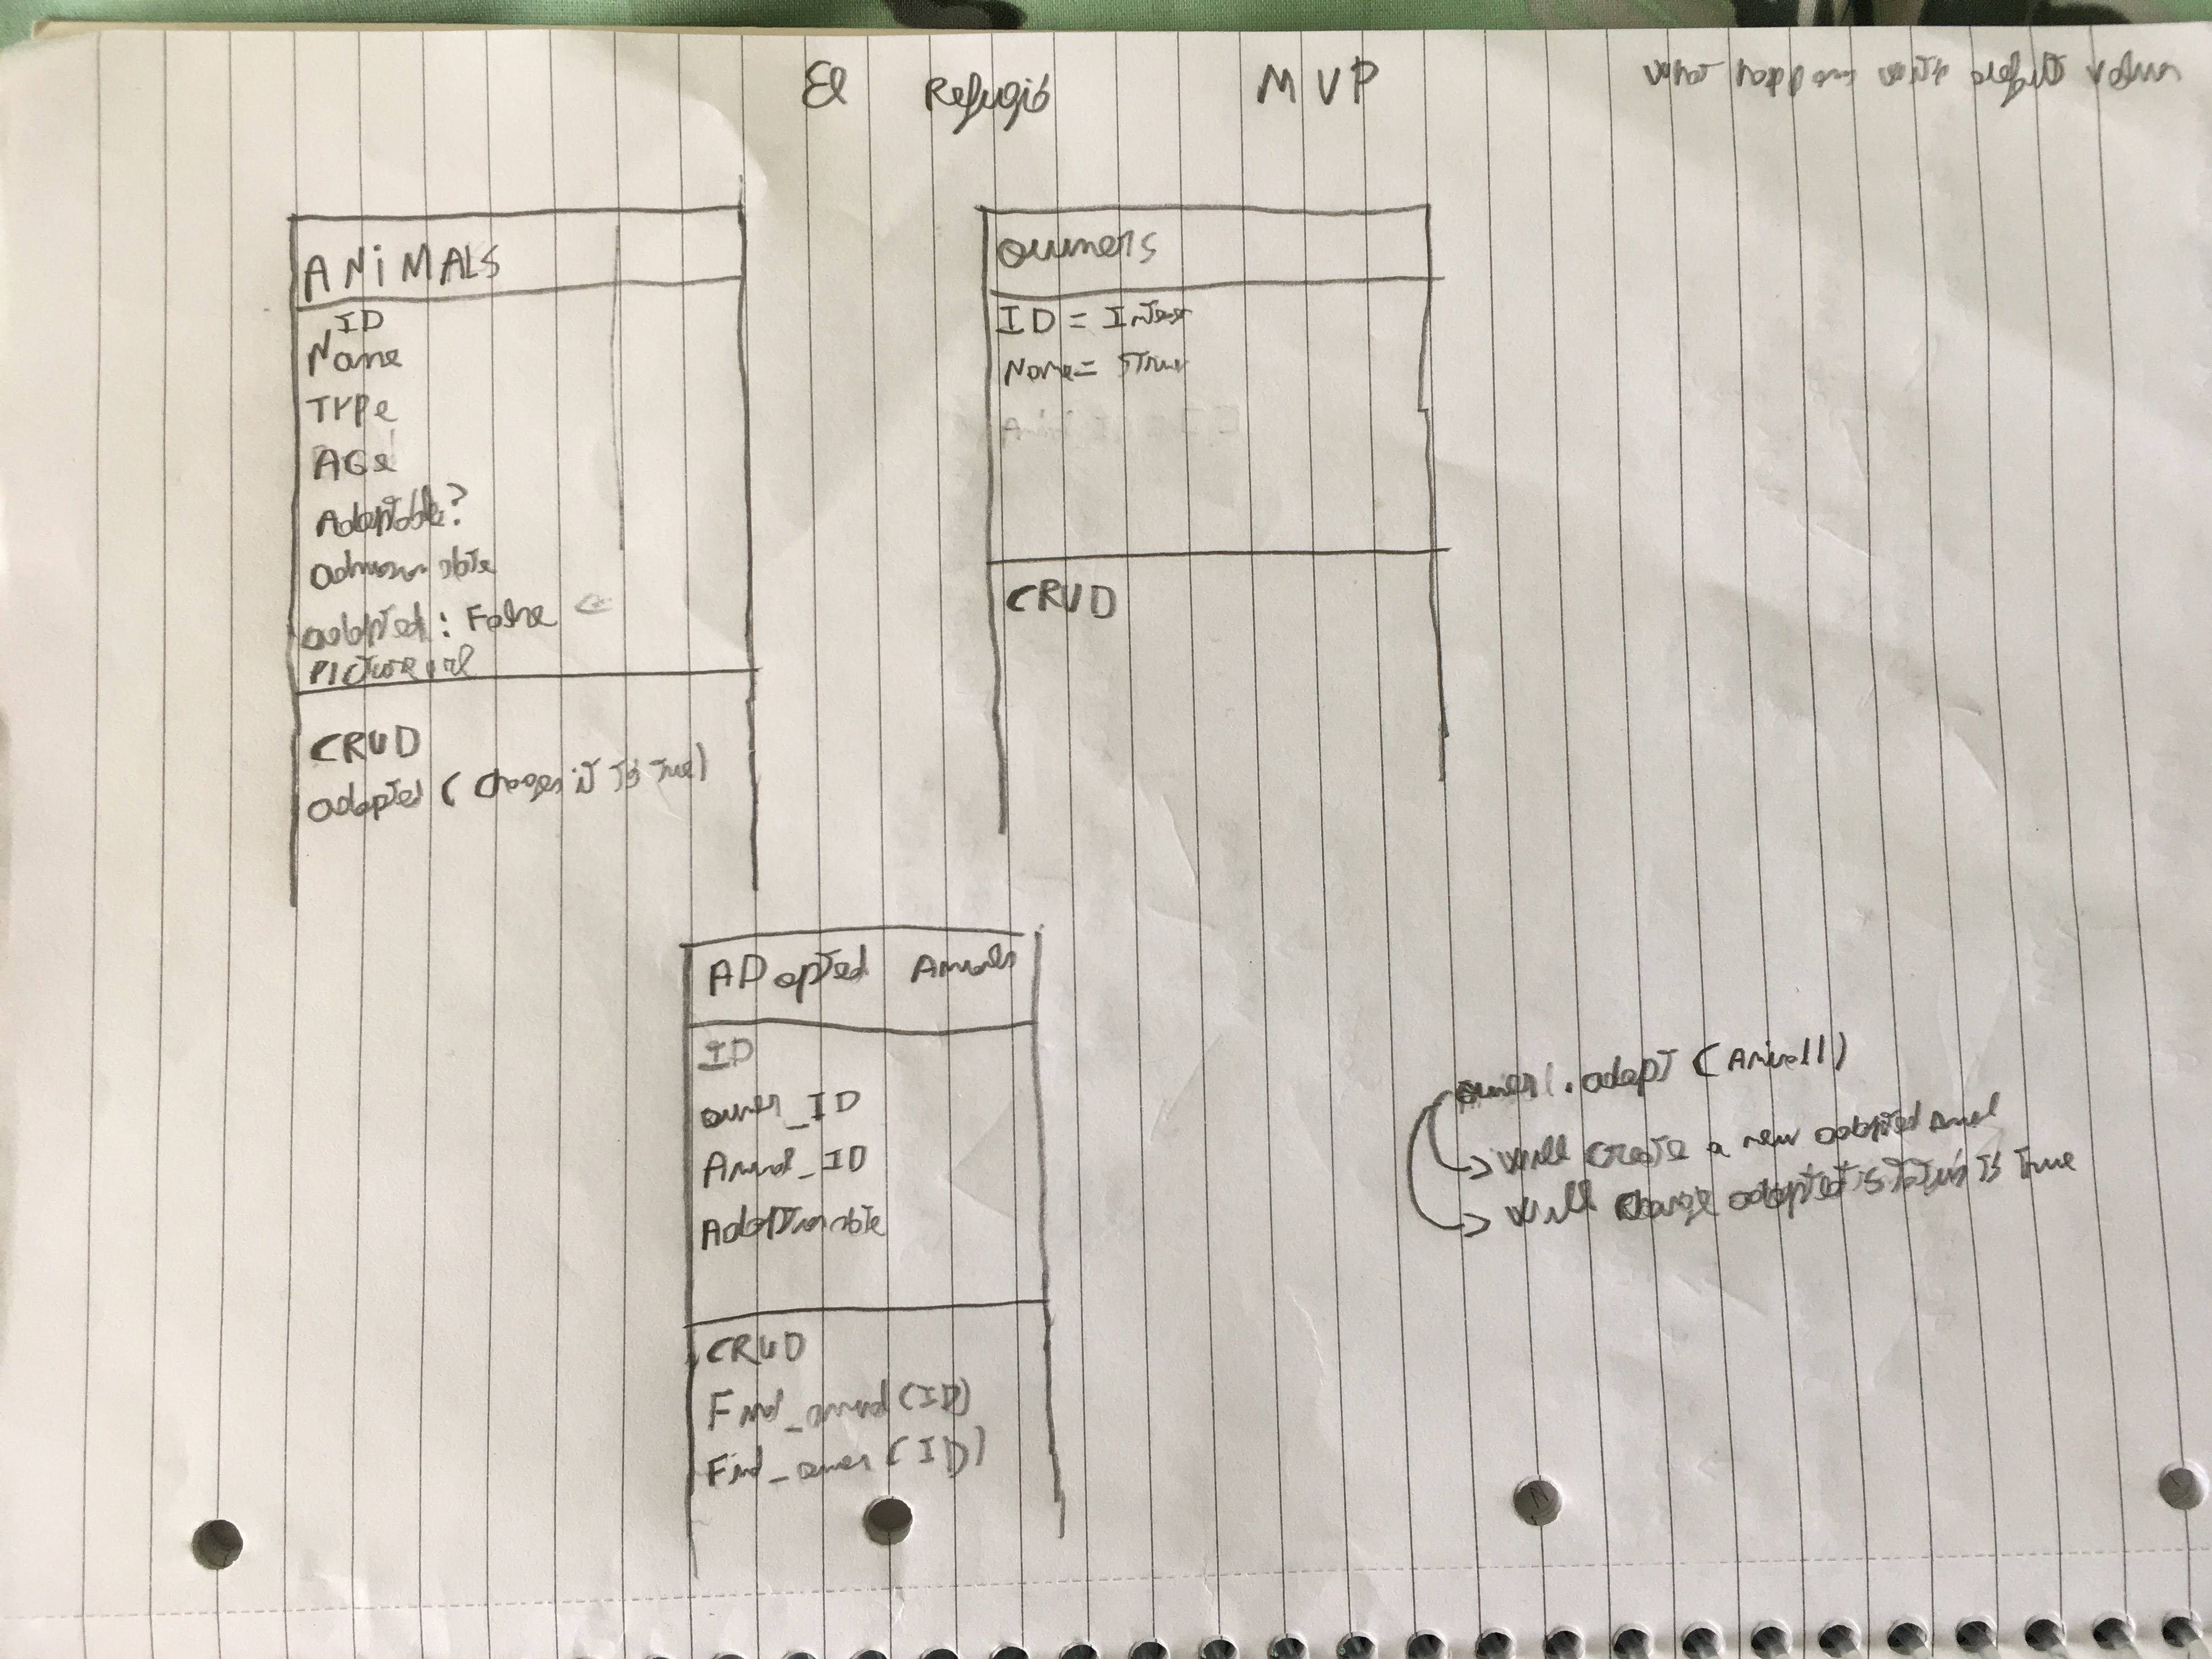 El Refugió MVP
what happens with default values
ANiMALS
ID
Name
Type
AGe
Adoptable?
admission date
adopted : False ←
Picture url
CRUD
adopted ( changes it to true)
owners
ID = Integer
Name = String
CRUD
ADopted Animals
ID
owner_ID
Animal_ID
Adoption date
CRUD
Find_animal (ID)
Find_owner (ID)
owner1.adopt (Animal1)
→ will create a new adopted animal
→ will change adopted status to true